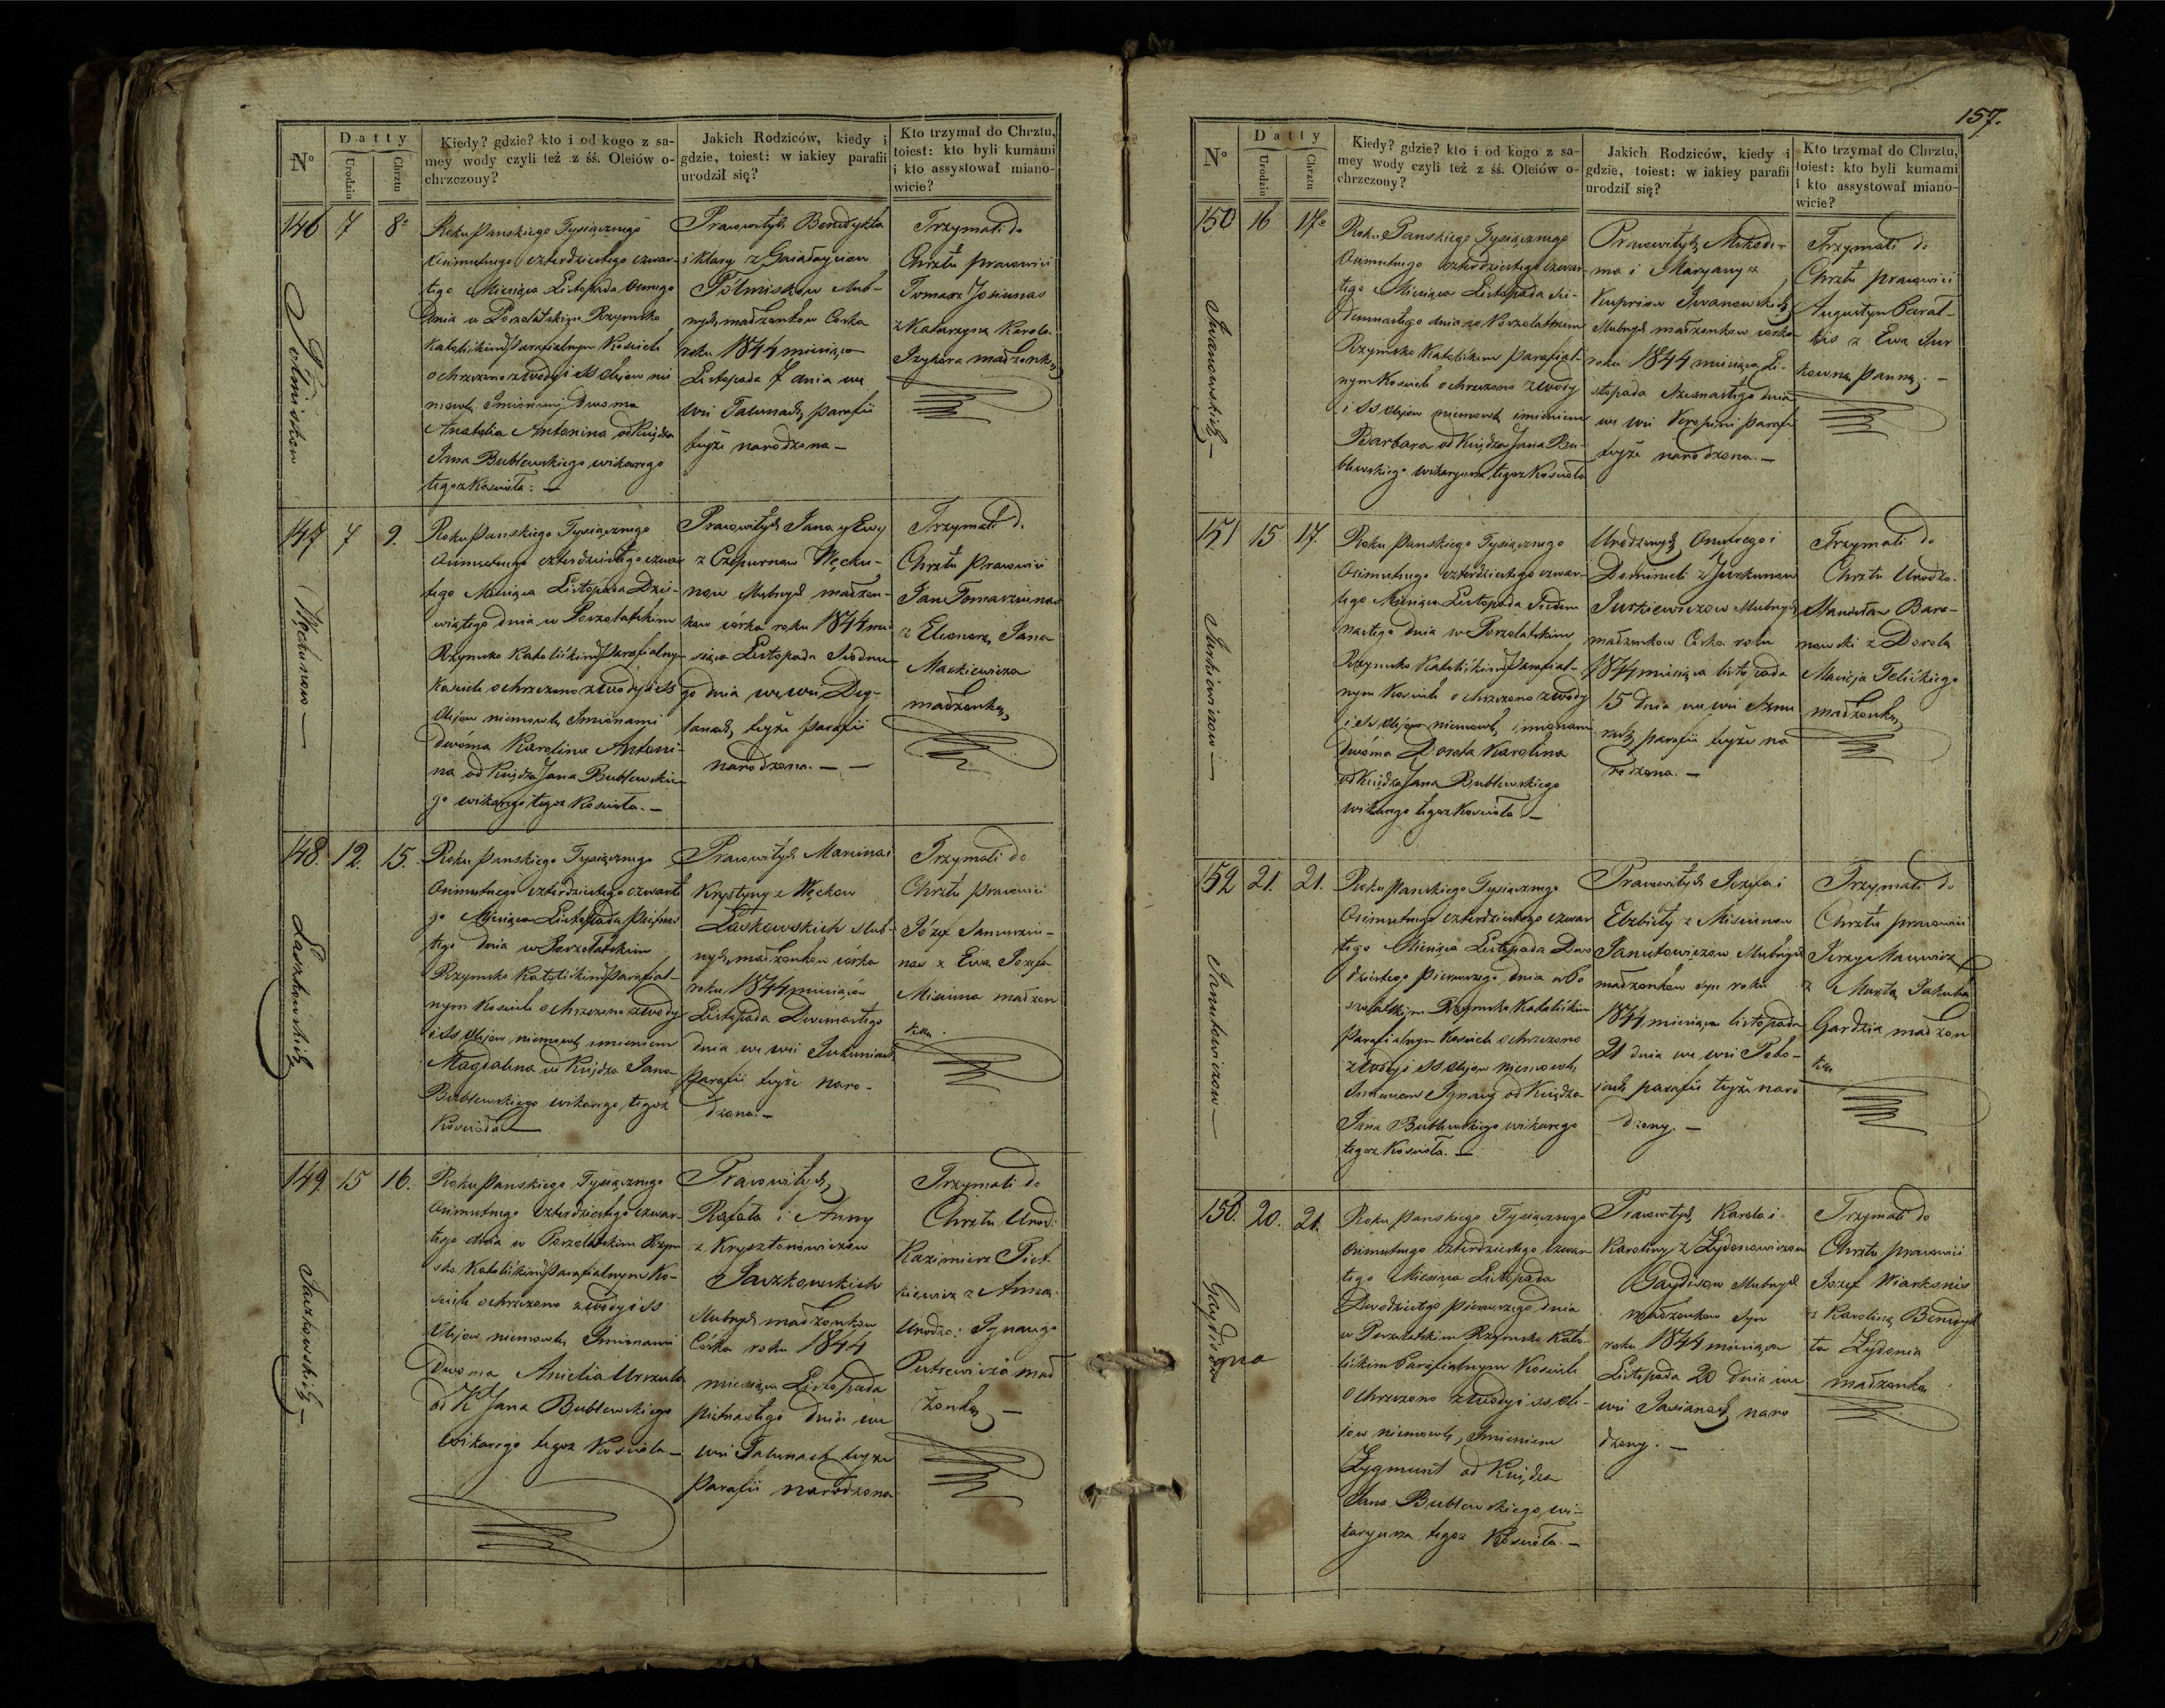 N°
Datty
Urodzin
Chrztu
Kiedy? gdzie? kto i od kogo z sa-
mey wody czyli też z śś. Oleiów o-
chrzczony?
Jakich Rodziców, kiedy i
gdzie, toiest: w iakiey parafii
urodził się?
Kto trzymał do Chrztu,
toiest: kto byli kumami
i kto assystował miano-
wicie?
146
7
8
Roku Panskiego Tysiącznego
Osimsetnego czterdziestego czwar-
tego Miesiąca Listopada Osmego
Dnia w Poszołatskim Rzymsko
Katolickim Parafialnym Kosciele
ochrzczono z wody i SS Olejow nie
mowlę Imionami Dwoma
Anatolia Antonina od Księdza
Jana Bublewskiego wikarego
tegoz Koscioła. —
Prawowitych Benedykta
i Klary z
slub-
nych małżonkow Corka
roku 1844 miesiąca
Listopada 7 dnia we
wsi parafii
tejże narodzona —
Trzymali do
Chrztu prawowici
Tomasz
z Katarzyną Karola
małżonką
147
7
9.
Węckunow —
Roku Panskiego Tysiącznego
Osimsetnego czterdziestego czwar
tego Miesiąca Listopada Dzie-
wiątego dnia w Poszołatskim
Rzymsko Katolickim Parafialnym
Kosciele ochrzczono z wody i SS
Olejow niemowlę Imionami
dwóma Karolina Antoni-
na od Księdza Jana Bublewskie-
go wikarego tegoz Kosciola. —
Prawowitych Jana y Ewy
z Węcku-
now slubnych małżon-
kow córka roku 1844 mie-
siąca Listopada Siodme-
go dnia we wsi
tejże parafii
narodzona. —
Trzymali do
Chrztu Prawowici
Jan
z Eleonorą Jana
Mackiewicza
małżonką
148.
12.
15.
Laszkowskich
Roku Panskiego Tysiącznego
Osimsetnego czterdziestego czwarte
go Miesiąca Listopada Piętnas
tego dnia w Poszołatskim
Rzymsko Katolickim Parafial-
nym Kosciele ochrzczono z wody
i SS Olejow niemowlę imieniem
Magdalena od Księdza Jana
Bublewskiego wikarego tegoz
Kosciola —
Prawowitych Marcina i
Krystyny z
slub-
nych małżonkow córka
roku 1844 miesiąca
Listopada Dwunastego
dnia we wsi
Parafii tejże naro-
dzona. —
Trzymali do
Chrztu prawowici
Józef
z Ewą Jozefa
małżon
ką.
149
15
16.
Roku Panskiego Tysiącznego
Osimsetnego czterdziestego czwar-
tego dnia w Poszołatskim Rzym
sko Katolickim Parafialnym Ko-
sciele ochrzczono z wody i SS
Olejow niemowlę Imionami
Dwoma Amelia Urszula
od X Jana Bublewskiego
Wikarego tegoz Kosciola —
Prawowitych
Rafała i Anny
z Krysztonowiczow
slubnych małżonkow
Córka roku 1844
miesiąca Listopada
piętnastego dnia we
wsi tejze
Parafii narodzona
Trzymali do
Chrztu Urod:
Kazimierz Piet-
kiewicz z Anną
Urodzo: Ignacego
mał
żonką —
157.
N°
Datty
Urodzin
Chrztu
Kiedy? gdzie? kto i od kogo z sa-
mey wody czyli też z śś. Oleiów o-
chrzczony?
Jakich Rodziców, kiedy i
gdzie, toiest: w iakiey parafii
urodził się?
Kto trzymał do Chrztu,
toiest: kto byli kumami
i kto assystował miano-
wicie?
150
16
17
Iwanowskich —
Roku Panskiego Tysiącznego
Osimsetnego czterdziestego czwar-
tego Miesiąca Listopada Sie-
demnastego dnia w Poszołatskim
Rzymsko Katolickim Parafial-
nym Kosciele ochrzczono z wody
i SS Olejow niemowlę imieniem
Barbara od Księdza Jana Bu-
blewskiego wikaryusza tegoz Kosciola
Prawowitych Nikode-
ma i Maryany z
Iwanowskich
slubnych małżonkow corka
roku 1844 miesiąca Li-
stopada Szesnastego dnia
we wsi parafii
tejże narodzona. —
Trzymali do
Chrztu prawowici
Augustyn
z Ewą
Panną. —
151
15
17.
Jurkiewiczow —
Roku Panskiego Tysiącznego
Osimsetnego czterdziestego czwar-
tego Miesiąca Listopada Siedem
nastego dnia w Poszołatskim
Rzymsko Katolickim Parafial-
nym Kosciele ochrzczono z wody
i SS Olejow niemowlę imionami
dwóma Dorota Karolina
od Księdza Jana Bublewskiego
wikarego tegoz Kosciola —
Urodzonych Onufrego i
Dominceli z
Jurkiewiczow slubnych
małżonkow Corka roku
1844 miesiąca listopada
15 dnia we wsi
parafii tejże na
rodzona. —
Trzymali do
Chrztu Urodzo.
Stanisław Bara-
nowski z Dorotą
Macieja
małżonką
152
21.
21.
Janutowiczow —
Roku Panskiego Tysiącznego
Osimsetnego czterdziestego czwar
tego Miesiąca Listopada Dwu
dziestego Pierwszego dnia w Po
szołatskim Rzymsko Katolickim
Parafialnym Kosciele ochrzczono
z wody i SS Olejow niemowlę
Imieniem Ignacy od Księdza
Jana Bublewskiego wikarego
tegoz Kosciola. —
Prawowitych Jozefa i
Elzbiety z
Janutowiczow slubnych
małzonkow syn roku
1844 miesiąca listopada
21 dnia we wsi
parafii tejże naro
dzony. —
Trzymali do
Chrztu prawowici
Jerzy
z Martą Jakuba
małżon
ką
153.
20.
21.
Roku Panskiego Tysiącznego
Osimsetnego czterdziestego czwar
tego Miesiąca Listopada
Dwudziestego pierwszego dnia
w Poszołatskim Rzymsko Kato-
lickim Parafialnym Kosciele
Ochrzczono z wody i SS Ole-
jow niemowlę, Imieniem
Zygmunt od Księdza
Jana Bublewskiego wi-
karyusza tegoz Kosciola. —
Prawowitych Karola i
Karoliny z
slubnych
małżonkow syn
roku 1844 miesiąca
Listopada 20 dnia we
wsi naro
dzony. —
Trzymali do
Chrztu prawowici
Jozef
z Karoliną Benedyk
ta
małżonką